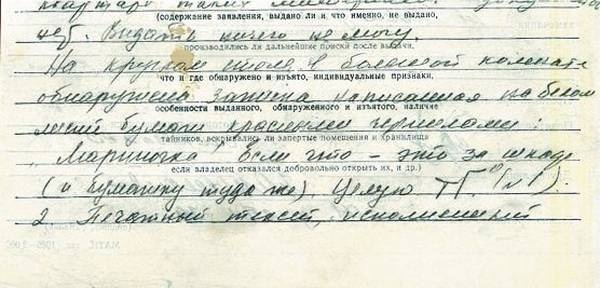 квартире таких материалов
(содержание заявления, выдано ли и что именно, не выдано,
нет. Выдать ничего не могу.
производились ли дальнейшие поиски после выдачи,
На круглом столе в большой комнате
что и где обнаружено и изъято, индивидуальные признаки,
обнаружена записка написанная на белом
особенности выданного, обнаруженного и изъятого, наличие
листе бумаги красными чернилами:
тайников, вскрывались ли запертые помещения и хранилища
„Мариночка! Если что – это за шкафом
если владелец отказался добровольно открыть их, и др.)
(и бумажку туда же). Целую ТГ." (№1).
2. Печатный текст, исполненный